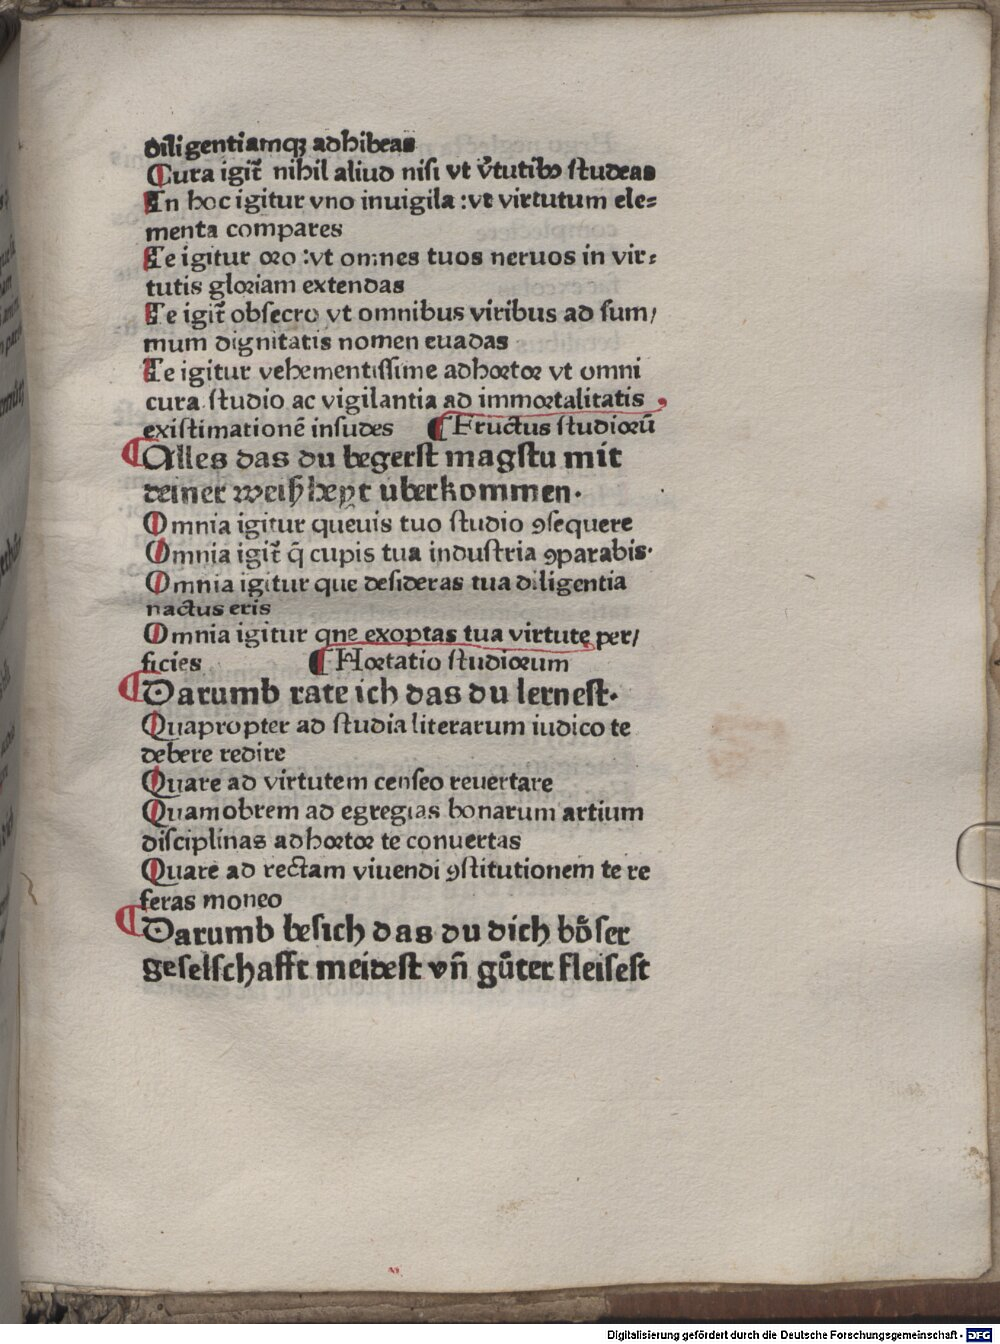 diligentiamqꝫ adhibeas
Cura igit̃ nihil aliud nisi vt v̾tutibꝰ studeas
In hoc igitur vno inuigila :vt virtutum ele⸗
menta compares
Te igitur oro :vt omnes tuos neruos in vir⸗
tutis gloriam extendas
Te igit̃ obsecro vt omnibus viribus ad sum/
mum dignitatis nomen euadas
Te igitur vehementissime adhortor vt omni
cura studio ac vigilantia ad immortalitatis
existimationē insudes ¶ Fructus studiorū
¶ Alles das du begerst magstu mit
deiner weißheyt uberkommen.
Omnia igitur queuis tuo studio ꝯsequere
Omnia igit̃ q̄ cupis tua industria ꝯparabis.
Omnia igitur que desideras tua diligentia
nactus eris
Omnia igitur qne exoptas tua virtute per/
ficies ¶ Hortatio studiorum
¶ Darumb rate ich das du lernest.
Quapropter ad studia literarum iudico te
debere redire
Quare ad virtutem censeo reuertare
Quamobrem ad egregias bonarum artium
disciplinas adhortor te conuertas
Quare ad rectam viuendi ꝯstitutionem te re
feras moneo
¶ Darumb besich das du dich boͤser
geselschafft meidest vn̄ guͤter fleisest
Digitalisierung gefördert durch die Deutsche Forschungsgemeinschaft - DFG